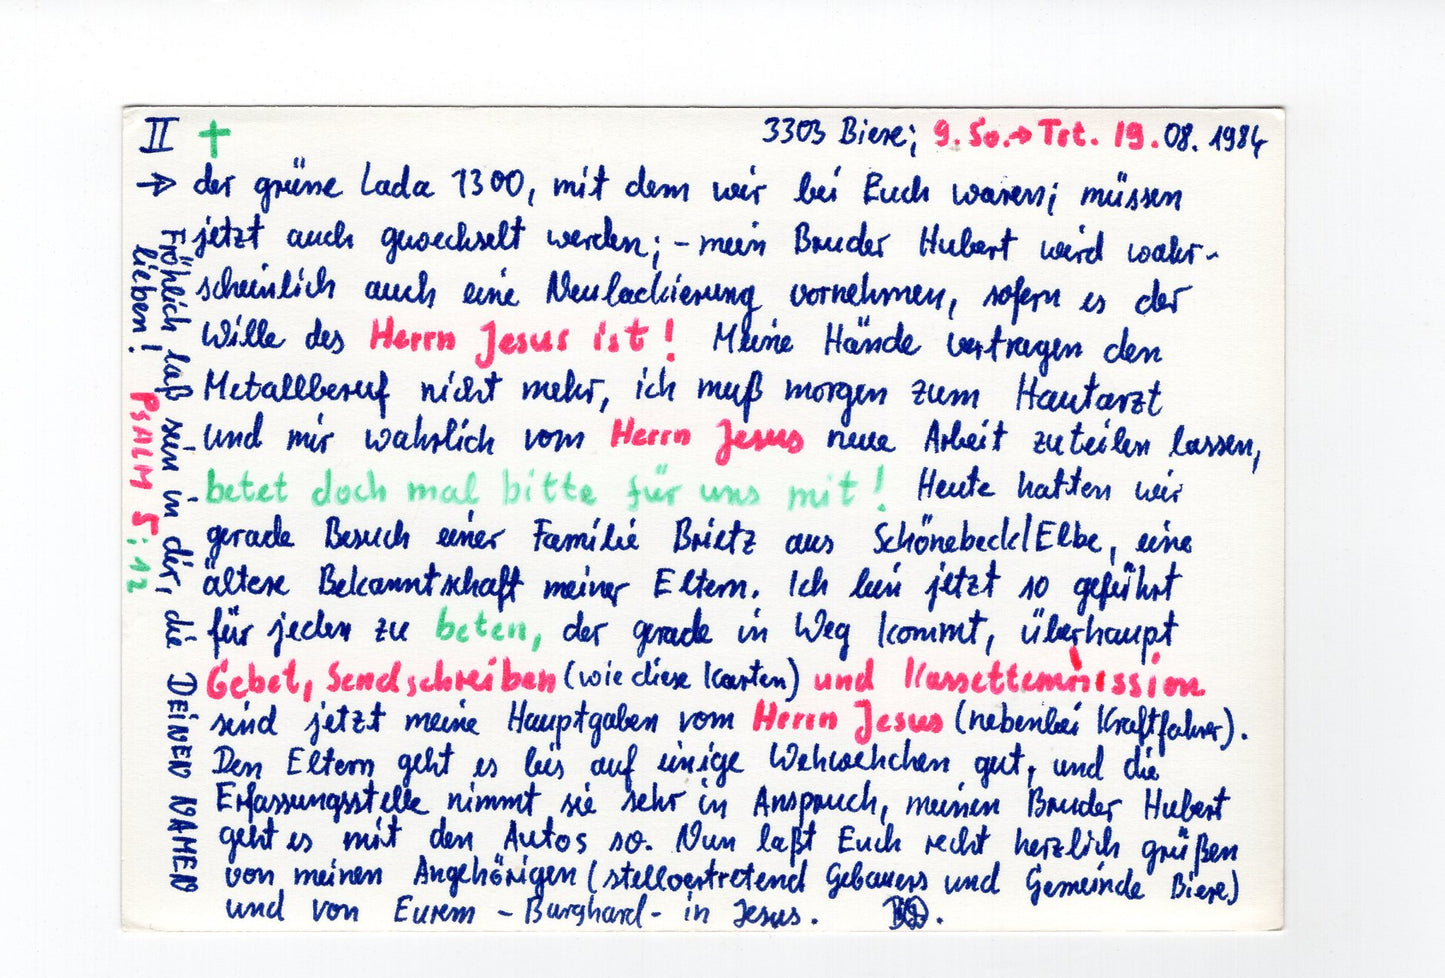 II ✝ 3303 Biere; 9. So. → Trt. 19.08.1984
der grüne Lada 1300, mit dem wir bei Euch waren; müssen
jetzt auch gewechselt werden; - mein Bruder Hubert wird wahr-
scheinlich auch eine Neulackierung vornehmen, sofern es der
Wille des Herrn Jesus ist! Meine Hände vertragen den
Metallberuf nicht mehr, ich muß morgen zum Hautarzt
und mir wahrlich vom Herrn Jesus neue Arbeit zuteilen lassen,
- betet doch mal bitte für uns mit! Heute hatten wir
gerade Besuch einer Familie Brietz aus Schönebeck/Elbe, eine
ältere Bekanntschaft meiner Eltern. Ich bin jetzt so geführt
für jeden zu beten, der gerade in Weg kommt, überhaupt
Gebet, Sendschreiben (wie diese Karten) und Kassettenmission
sind jetzt meine Hauptgaben vom Herrn Jesus (nebenbei Kraftfahrer).
Den Eltern geht es bis auf einige Wehwehchen gut, und die
Erfassungsstelle nimmt sie sehr in Anspruch, meinen Bruder Hubert
geht es mit den Autos so. Nun laßt Euch recht herzlich grüßen
von meinen Angehörigen (stellvertretend Gebauers und Gemeinde Biere)
und von Eurem - Burghard - in Jesus.
Fröhlich laß sein in dir, die DEINEN NAMEN
lieben! PSALM 5:12